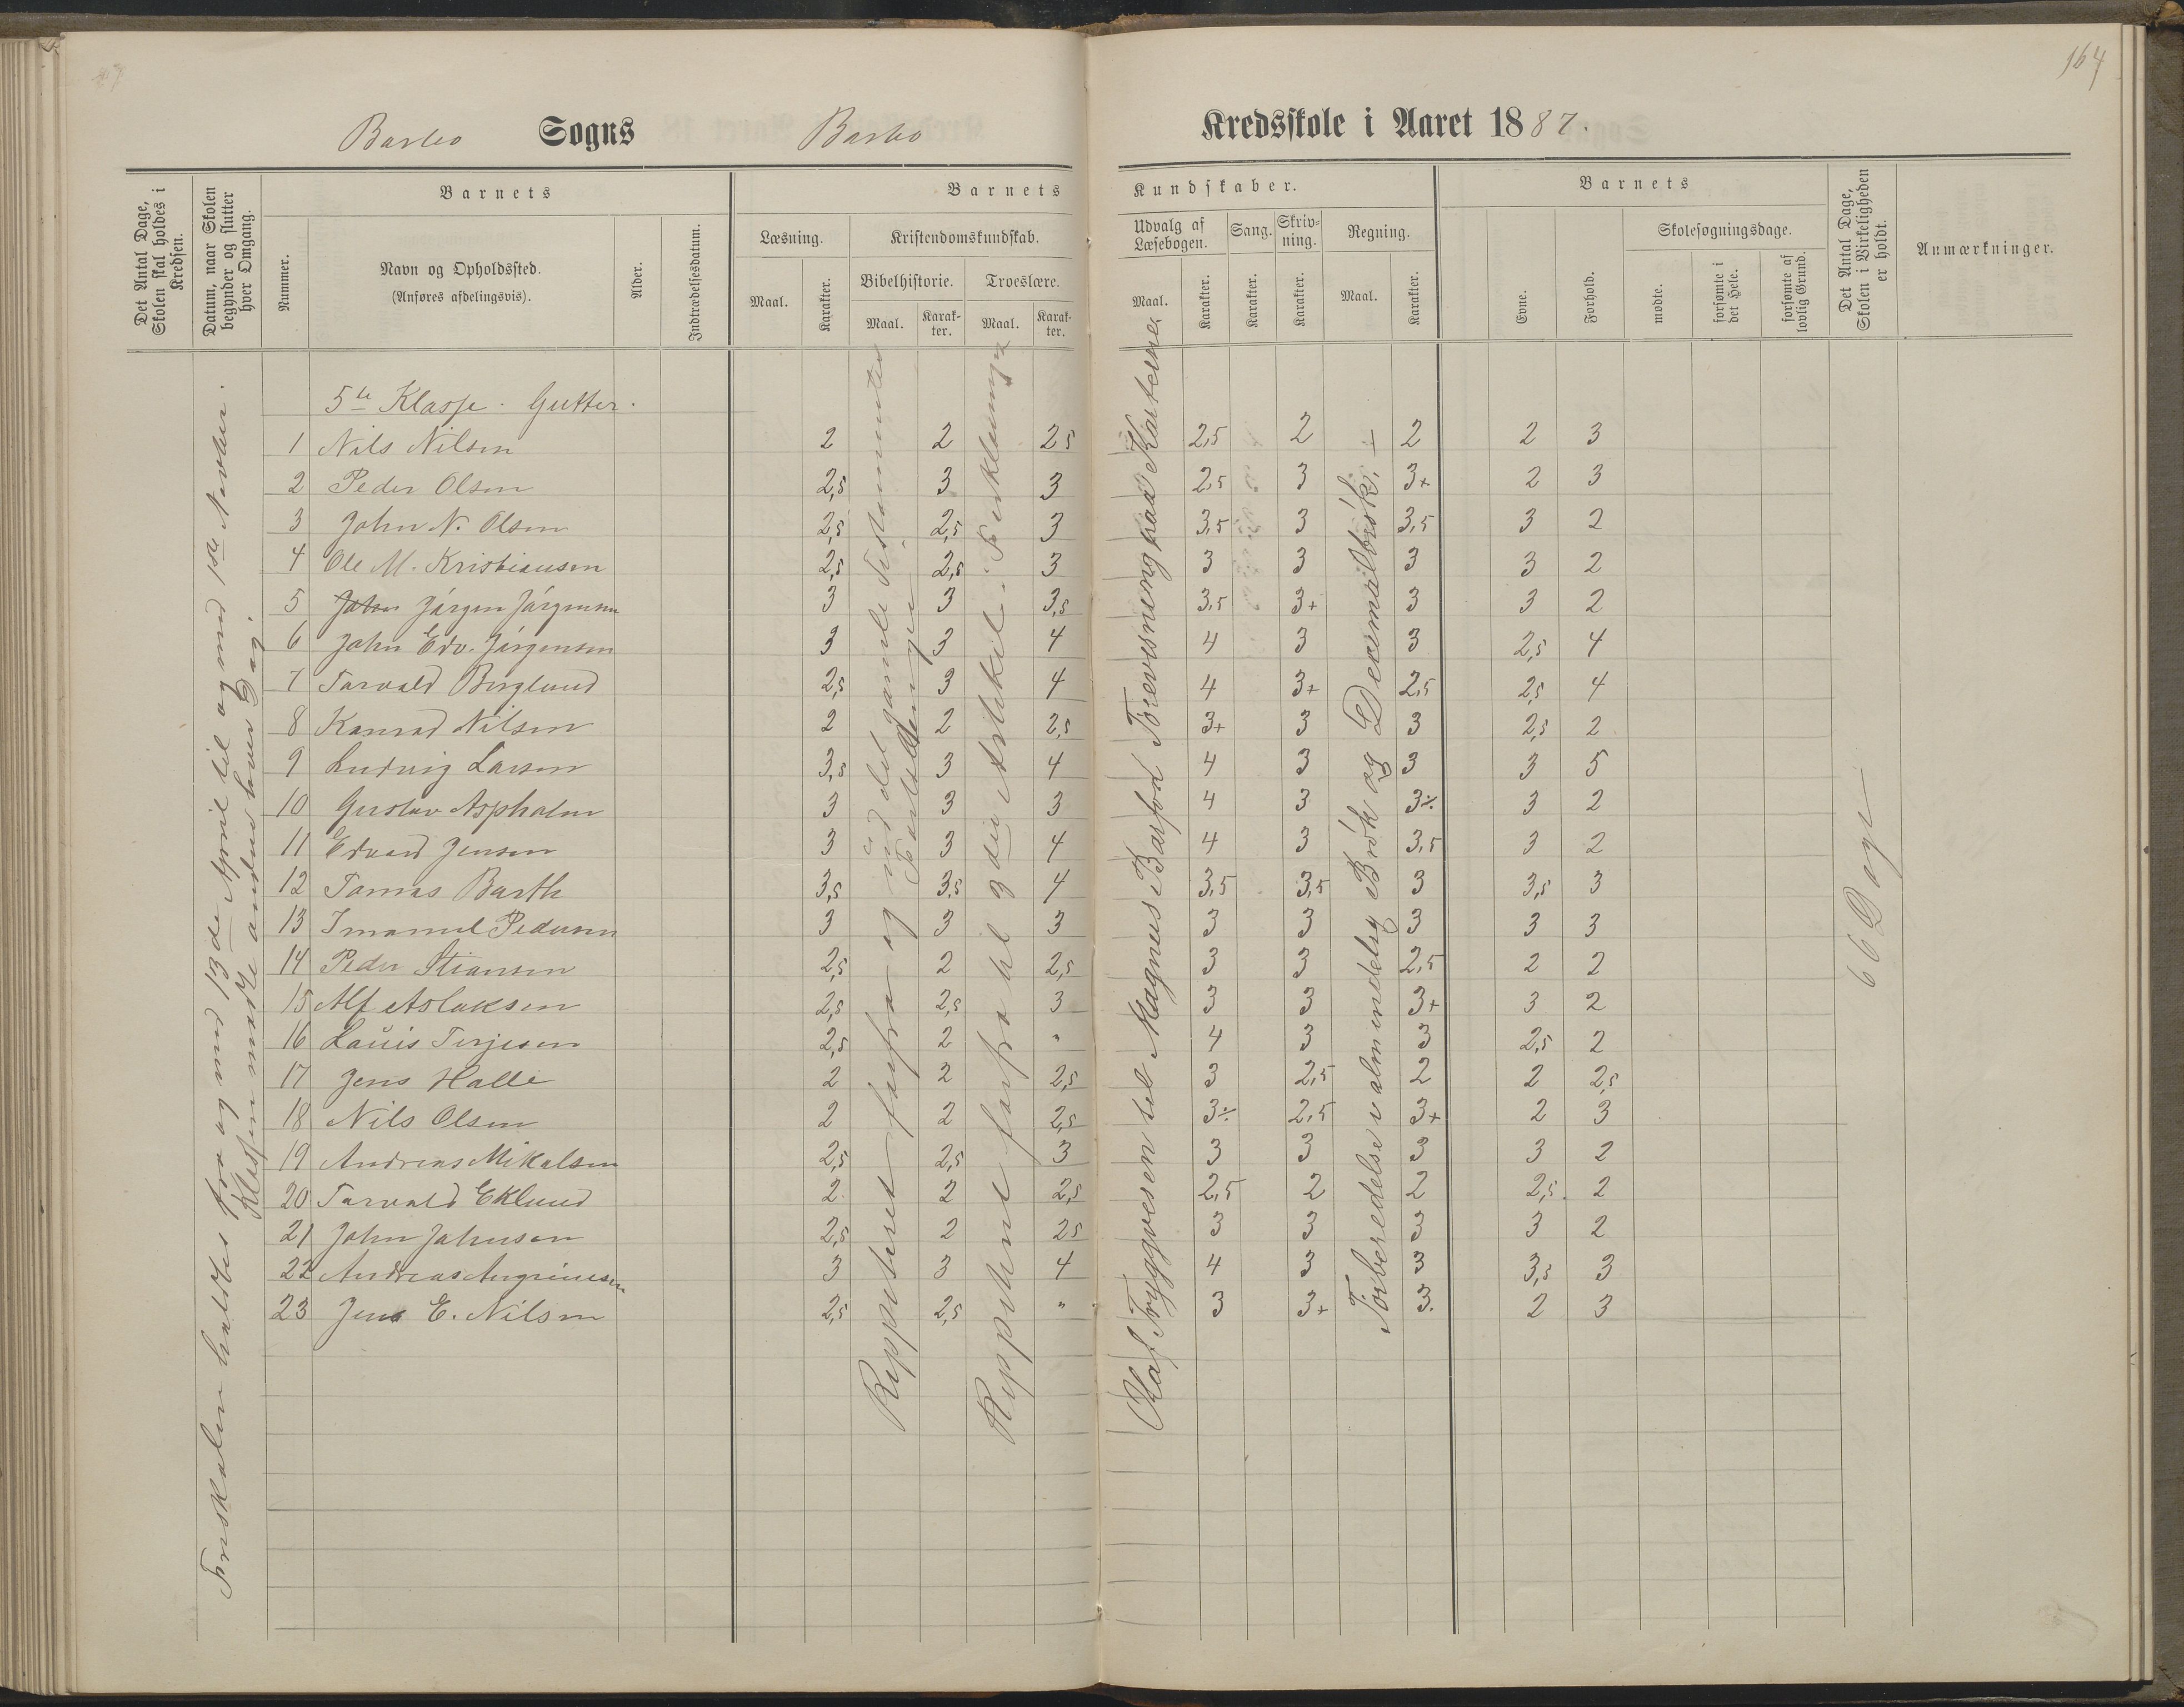 164
Barbo Sogns Barbo Kredsskole i Aaret 1887.
Det Antal Dage, Skolen skal holdes i Kredsen.
Datum, naar Skolen begynder og slutter hver Omgang.
Nummer.
Barnets
Navn og Opholdssted.
(Anføres afdelingsvis).
Alder.
Indtrædelsesdatum.
Barnets Kundskaber.
Læsning.
Maal.
Karakter.
Kristendomskundskab.
Bibelhistorie.
Maal.
Karakter.
Troeslære.
Maal.
Karakter.
Udvalg af Læsebogen.
Maal.
Karakter.
Sang.
Karakter.
Skrivning.
Karakter.
Regning.
Maal.
Karakter.
Barnets
Evne.
Forhold.
Skolesøgningsdage.
mødte.
forsømte i det Hele.
forsømte af lovlig Grund.
Det Antal Dage, Skolen i Virkeligheden er holdt.
Anmærkninger.
Friskolen holdtes fra og med 13de April til og med 1ste November.
Klassen mødte anden hver Dag.
Reppeteret forfra og med det gamle Testamente
Reppetent forfra til 9de i Artikel
Olaf Tryggvesen til Magnus Barfod Forevisning paa Karterne
Forberedelse i almindelig Brøk og Decimalbrøk.
66 Dage
5te Klasse. Gutter.
1 Nils Nilsen 2 2 25 2,5 2 2 2 3
2 Peder Olsen 2,5 3 3 2,5 3 3+ 2 3
3 John N. Olsen 2,5 2,5 3 3,5 3 3,5 3 2
4 Ole M. Kristiansen 2,5 2,5 3 3 3 3 3 2
5 Jørgen Jørgensen 3 3 3,5 3,5 3+ 3 3 2
6 John Edv. Jørgensen 3 3 4 4 3 3 2,5 4
7 Torvald Berglund 2,5 3 4 4 3+ 2,5 2,5 4
8 Konrad Nilsen 2 2 2,5 3+ 3 3 2,5 2
9 Ludvig Larsen 3,5 3 4 4 3 3 3 5
10 Gustav Aspholm 3 3 3 4 3 3÷ 3 2
11 Edvard Jensen 3 3 4 4 3 3,5 3 2
12 Tomas Barth 3,5 3,5 4 3,5 3,5 3 3,5 3
13 Imanuel Pedersen 3 3 3 3 3 3 3 3
14 Peder Stiansen 2,5 2 2,5 3 3 2,5 2 2
15 Alf Aslaksen 2,5 2,5 3 3 3 3+ 3 2
16 Louis Terjesen 2,5 2 " 4 3 3 2,5 2
17 Jens Halle 2 2 2,5 3 2,5 2 2 2,5
18 Nils Olsen 2 2 2,5 3÷ 2,5 3+ 2 3
19 Andreas Mikalsen 2,5 2,5 3 3 3 3 3 2
20 Torvald Eklund 2 2 2,5 2,5 2 2 2,5 2
21 John Johnsen 2,5 2 25 3 3 3 3 2
22 Andreas Angrimesen 3 3 4 4 3 3 3,5 3
23 Jens E. Nilsen 2,5 2,5 " 3 3+ 3. 2 3